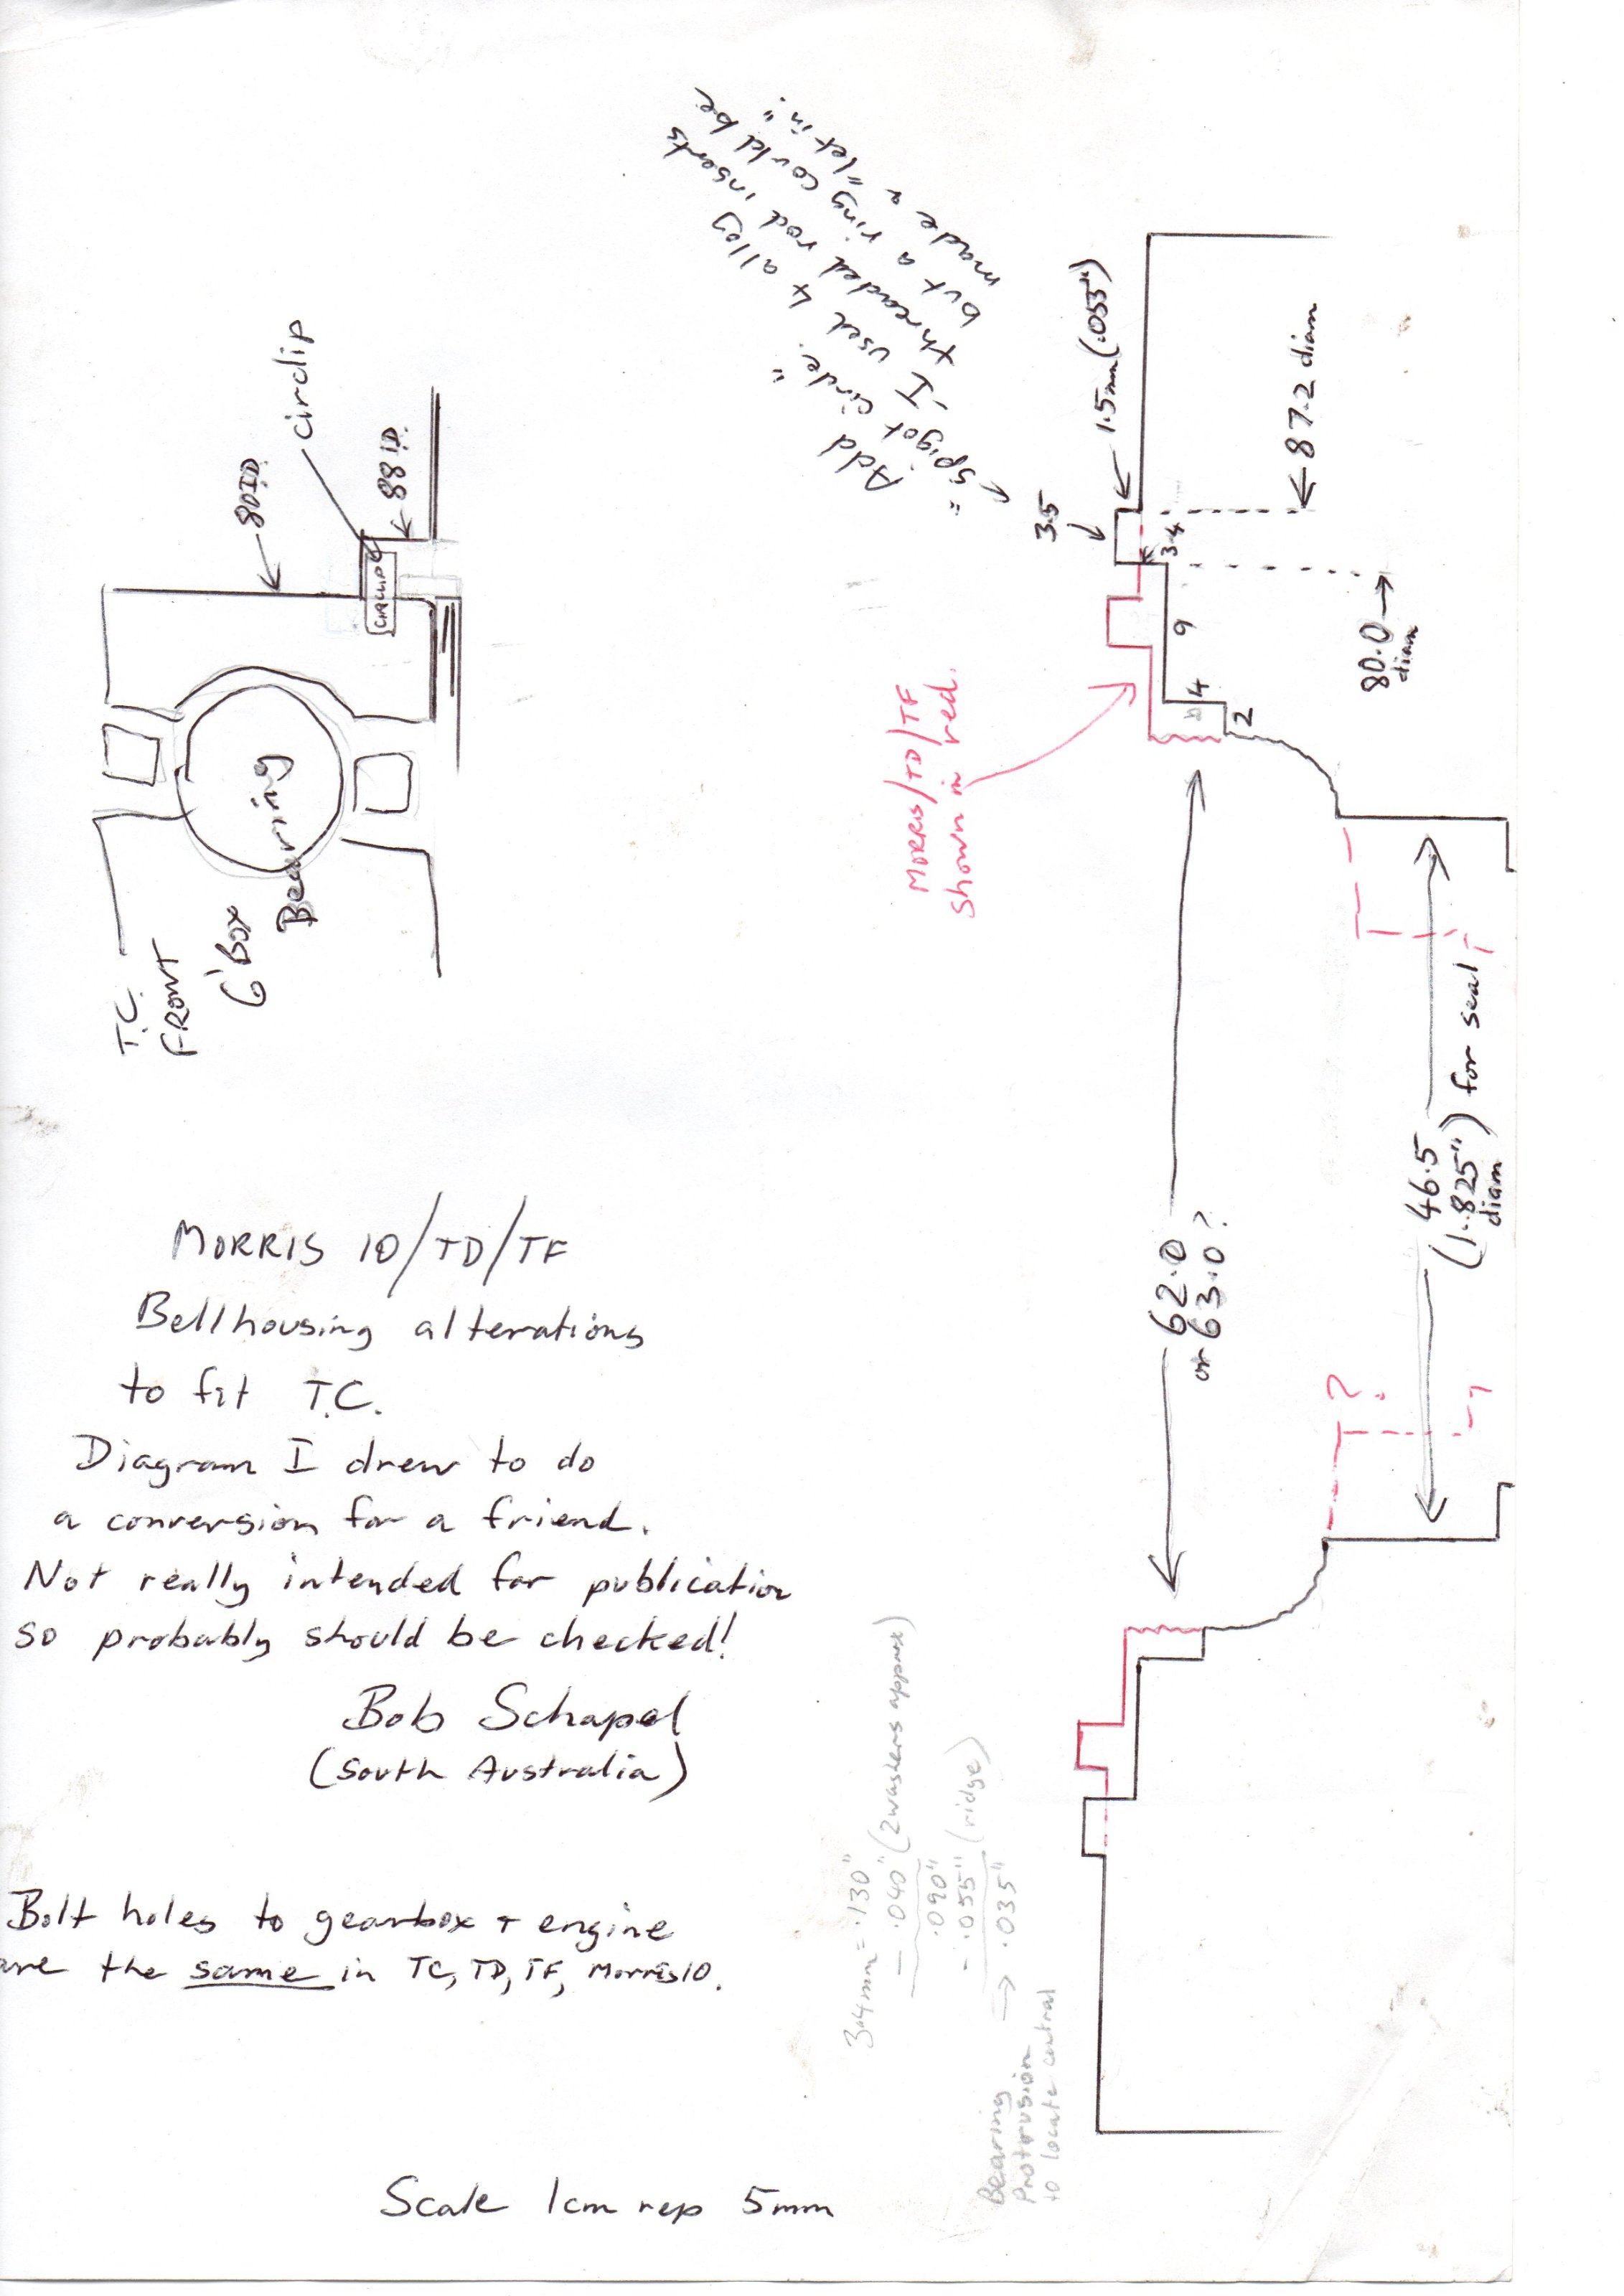 MORRIS 10/TD/TF
Bellhousing alterations
to fit T.C.
Diagram I drew to do
a conversion for a friend.
Not really intended for publication
so probably should be checked!
Bob Schapel
(South Australia)
Bolt holes to gearbox + engine
are the same in TC, TD, TF, Morris 10.
Scale 1cm rep 5mm
T.C.
FRONT
G'BOX
Bearring
80ID
circlip
CIRCLIP
88 ID.
Add
"spigot circle."
I used 4 alloy
threaded rod inserts
but a ring could be
made & "let in".
3.5
1.5mm (.055")
87.2 diam
3.4
9
4
2
80.0
diam
MORRIS/TD/TF
shown in red.
62.0
or 63.0?
46.5
(1.825") for seal
diam
?
3.4mm = .130"
- .040" (2 washers approx)
.090"
- .055" (ridge)
→ .035"
Bearing
Protrusion
to locate central